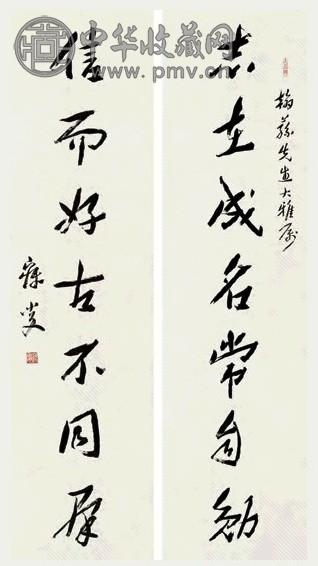 中华收藏网
www.pmv.cn
先生大雅属
志在成名常自勉
信而好古不同群
寐叟